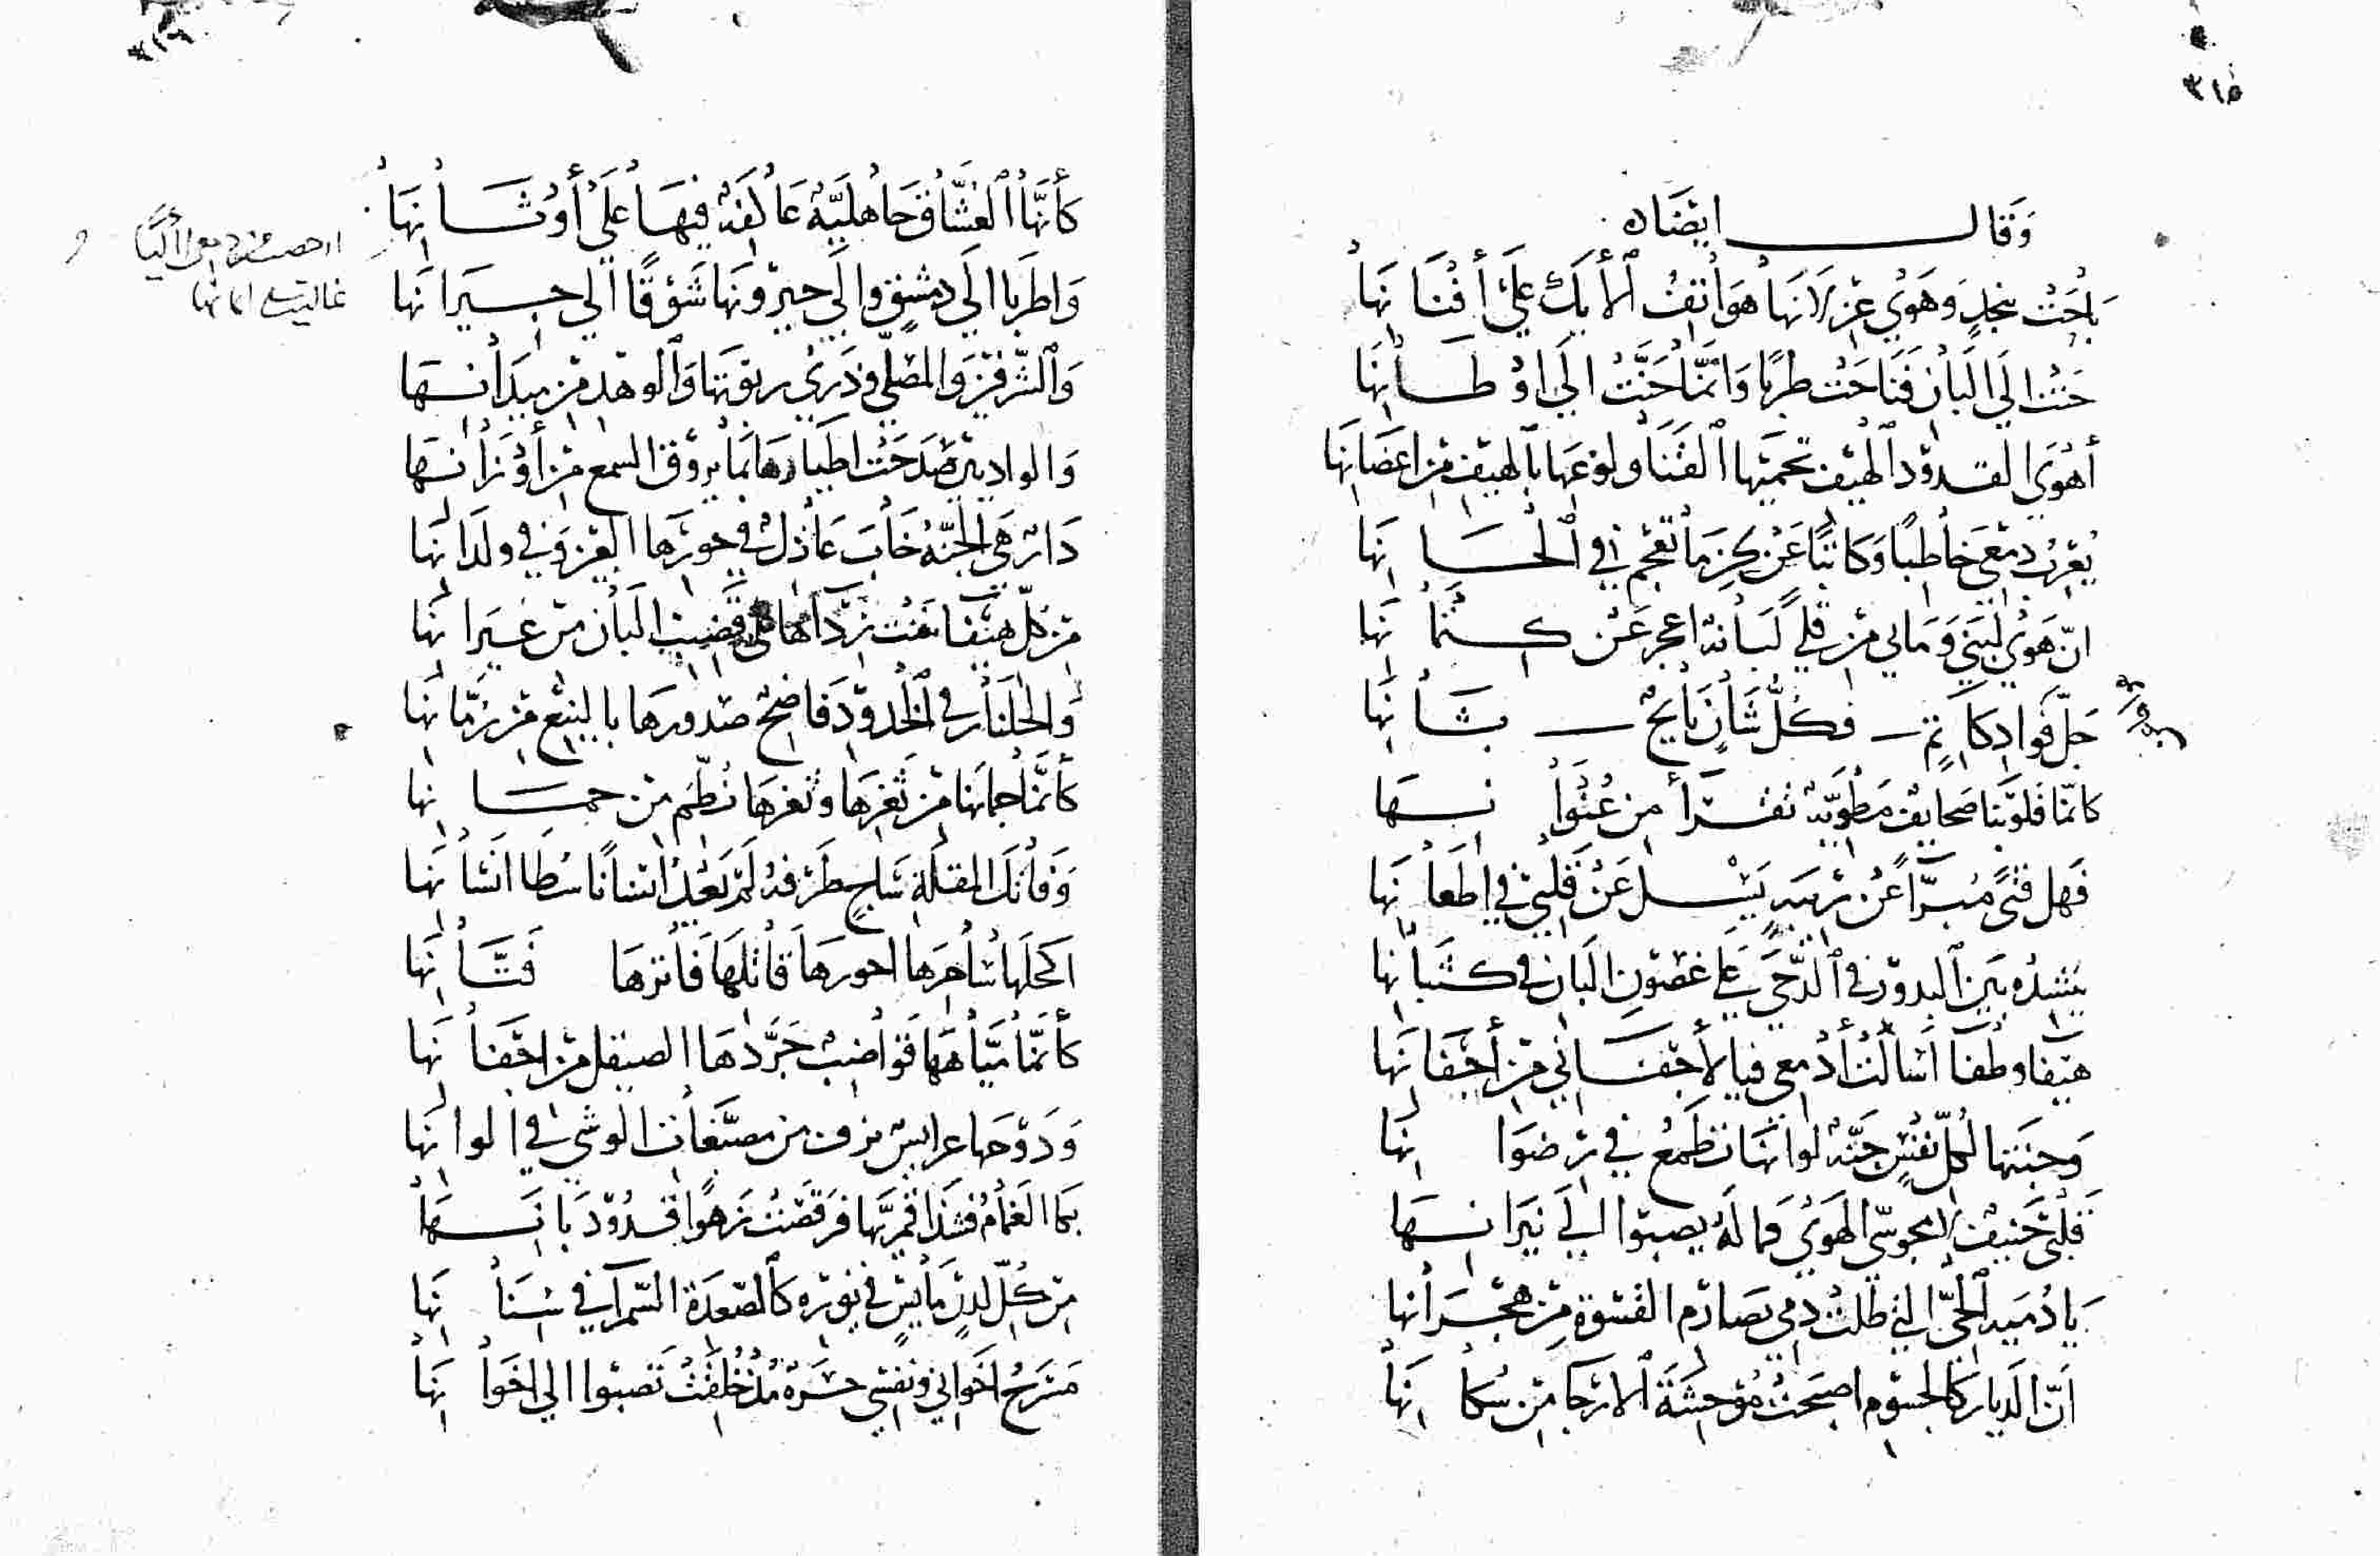 ٣١٥
وَقَالَ ايضًاه
بَاحَتْ بنجدٍ وَهَوَى غزلانهَا هَوَاتِفُ الأيكِ عَلَى أَفْنَانِهَا
حَنَّتْ الَى البَانِ فَنَاحَتْ طربًا وَانَّمَا حَنَّتْ الَى اوْطَانِهَا
أهْوَى القدودَ الهيفَ تحميهَا القَنَا وَلوعهَا بالهيفِ مِن اغصَانِهَا
يُعْرِبُ دمْعى خاطبًا وَكاتبًا عَن كلِّ مَا تعجمُ فى الْحَانِهَا
انّ هَوَى لُبنَى وَمَا لى مِن قلى لُبَانةٌ اعجز عَن كتمَانِهَا
جلّ فؤاد كاتم فكُلُّ شَانٍ بَايحٌ بشَانِهَا
كانّما قلوبنا صَحَايفٌ مَطْويّةٌ تقرَأ من عُنْوانِهَا
فَهل فتًى مُبرّأ عَن ريبةٍ يَسْل عَنْ قلبى فى اظعَانِهَا
ينشدُه بَين البدورِ فى الدُّجَى عَلى غصُونِ البَانِ فى كثبَانِهَا
هيفَا وطفَا اسَالتْ أدْمعى فيَا لأجفَانى مِن أجفَانِهَا
وَجنتهَا لكلّ نفْسٍ جَنّةٌ لوَانّهَا تطمَعُ فى رضوَانِهَا
قَلْبى حَنيفٌ لا مجوسّى الهَوَى فمَا لَهُ يصبُوا الى نيرَانِهَا
يَا دُمية الْحىّ التى طلّت دمى بصَارم القسْوة مِن هجرَانِهَا
انّ الديَار كالجسُوم اصبَحَتْ مُوْحِشَةَ الارجَا مِن سُكَّانِهَا
٣١٦
كأنّهَا العُشّاقُ جَاهليّةٌ عَاكفَةٌ فيهَا عَلَى أوْثَانِهَا
وَاطرَبَا الَى دمشقٍ وَالَى جيرونهَا شَوْقًا الى جيرَانِهَا
وَالشّرفينِ وَالمُصَلّى وَذرَى ربوَتهَا وَالوهدِ مِن ميدَانِهَا
وَالواديين صَدَحَتْ اطيَارهَا بمَا يروق السمعَ مِن أوْزَانِهَا
دَارٌ هىَ الجَنّةُ خَابَ عَاذلٌ فى حورِهَا العِينِ وَفى ولدَانِهَا
مِن كلّ هيفَا نفت رُدَاهَا على قضيبِ البَانِ مِن غيرَانِهَا
وَالجُلّنَارُ فى الخُدُودِ فَاضِحٌ صُدورهَا باليَنْعِ مِن رُمّانِهَا
كأنّمَا جمَانهَا مِن ثغرِهَا وَثغرهَا نُظّمَ مِن جمَانِهَا
وَفاتك المقلَةِ سَاجٍ طَرْفهُ لَمْ يَعْدُ انسَانًا سُطَا انسَانِهَا
اكحلهَا سَاحِرهَا احورهَا قاتلهَا فَاترهَا فَتّانِهَا
كأنّمَا ميَاهَهَا قوَاضبٌ جَرّدَهَا الصيقل مِن اجفَانِهَا
وَدَوْحهَا عرايسٌ تزف مِن مصبّغَاتِ الوشى فى الوانِهَا
بكَا الغَمَامُ فشَدَا قُمريُّهَا فرَقصَتْ زهوًا قدُوْدُ بَانِهَا
مِن كلّ لدنٍ مَايسٍ فى نَوره كالصّعدَة السّمرَا فى سنَانِهَا
مَسْرَحُ اخوَانى وَنفسى حُرّةٌ مُذْ خُلِقَتْ تَصبُوا الى اخوَانِهَا